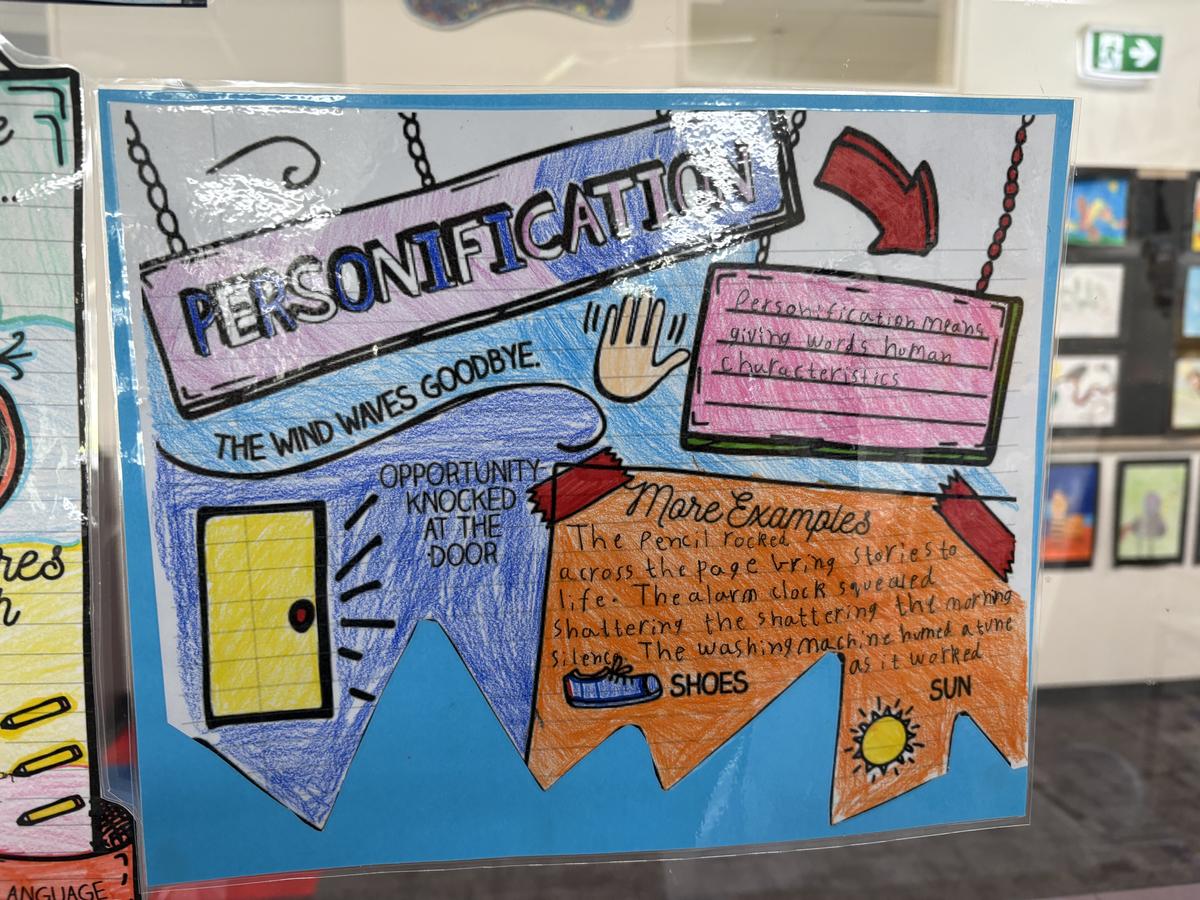 PERSONIFICATION
Personification means
giving words human
characteristics
THE WIND WAVES GOODBYE.
OPPORTUNITY
KNOCKED
AT THE
DOOR
More Examples
The Pencil rocked
across the page bring stories to
life. The alarm clock squealed
shattering the shattering the morning
silence The washing machine humed a tune
as it worked
SHOES
SUN
e
...
res
n
ANGUAGE